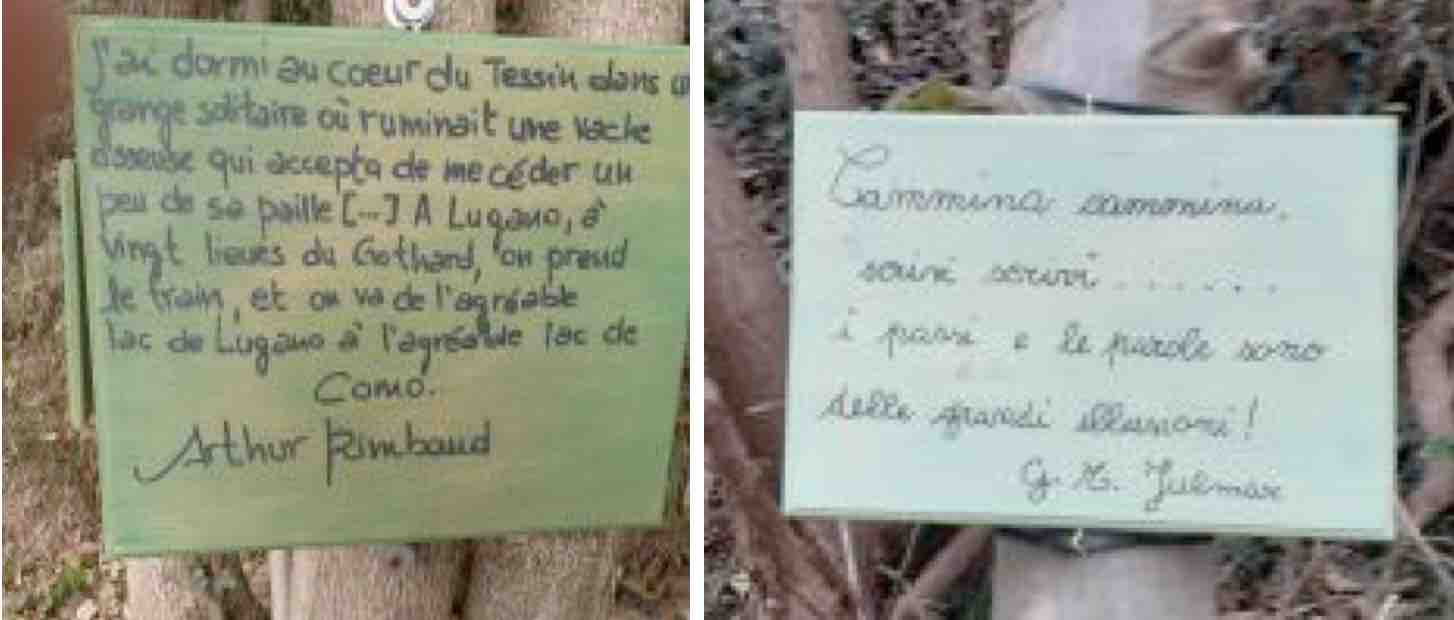 J'ai dormi au coeur du Tessin dans
grange solitaire où ruminait une vache
osseuse qui accepta de me céder un
peu de sa paille [...] A Lugano, à
vingt lieues du Gothard, on prend
le train, et on va de l'agréable
lac de Lugano à l'agréable lac de
Como.
Arthur Rimbaud
Cammina cammina,
scrivi scrivi.......
i passi e le parole sono
delle grandi illusioni!
G. Julmax